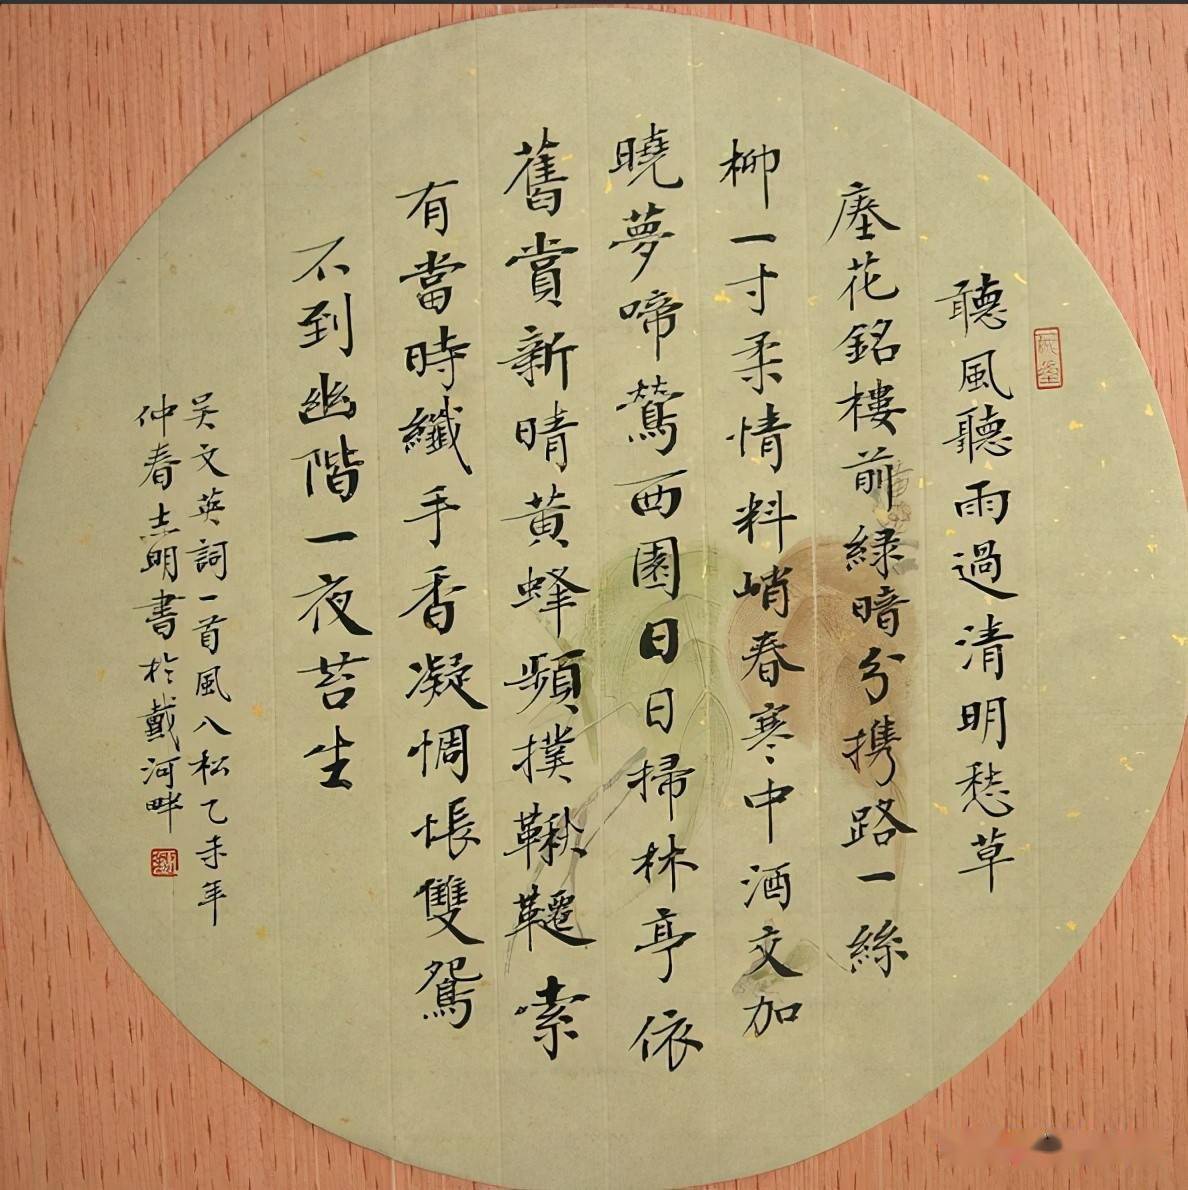 聽風聽雨過清明愁草
瘞花銘樓前緑暗分携路一絲
柳一寸柔情料峭春寒中酒交加
曉夢啼鶯西園日日掃林亭依
舊賞新晴黃蜂頻撲鞦韆索
有當時纖手香凝惆悵雙鴛
不到幽階一夜苔生
吴文英詞一首風入松乙未年
仲春志明書於戴河畔